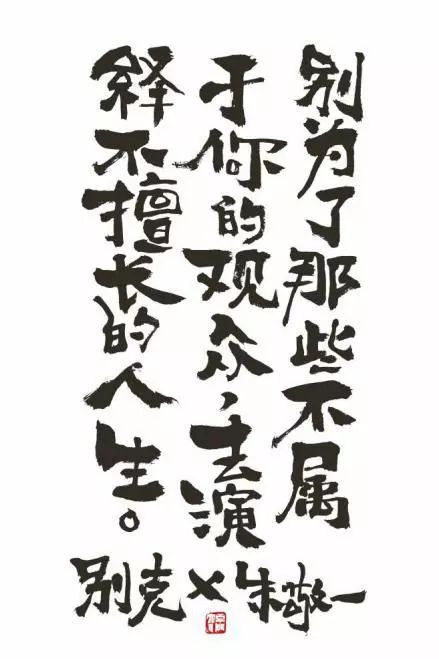 别为了那些不属
于你的观众，去演
绎不擅长的人生。
别克×朱敬一